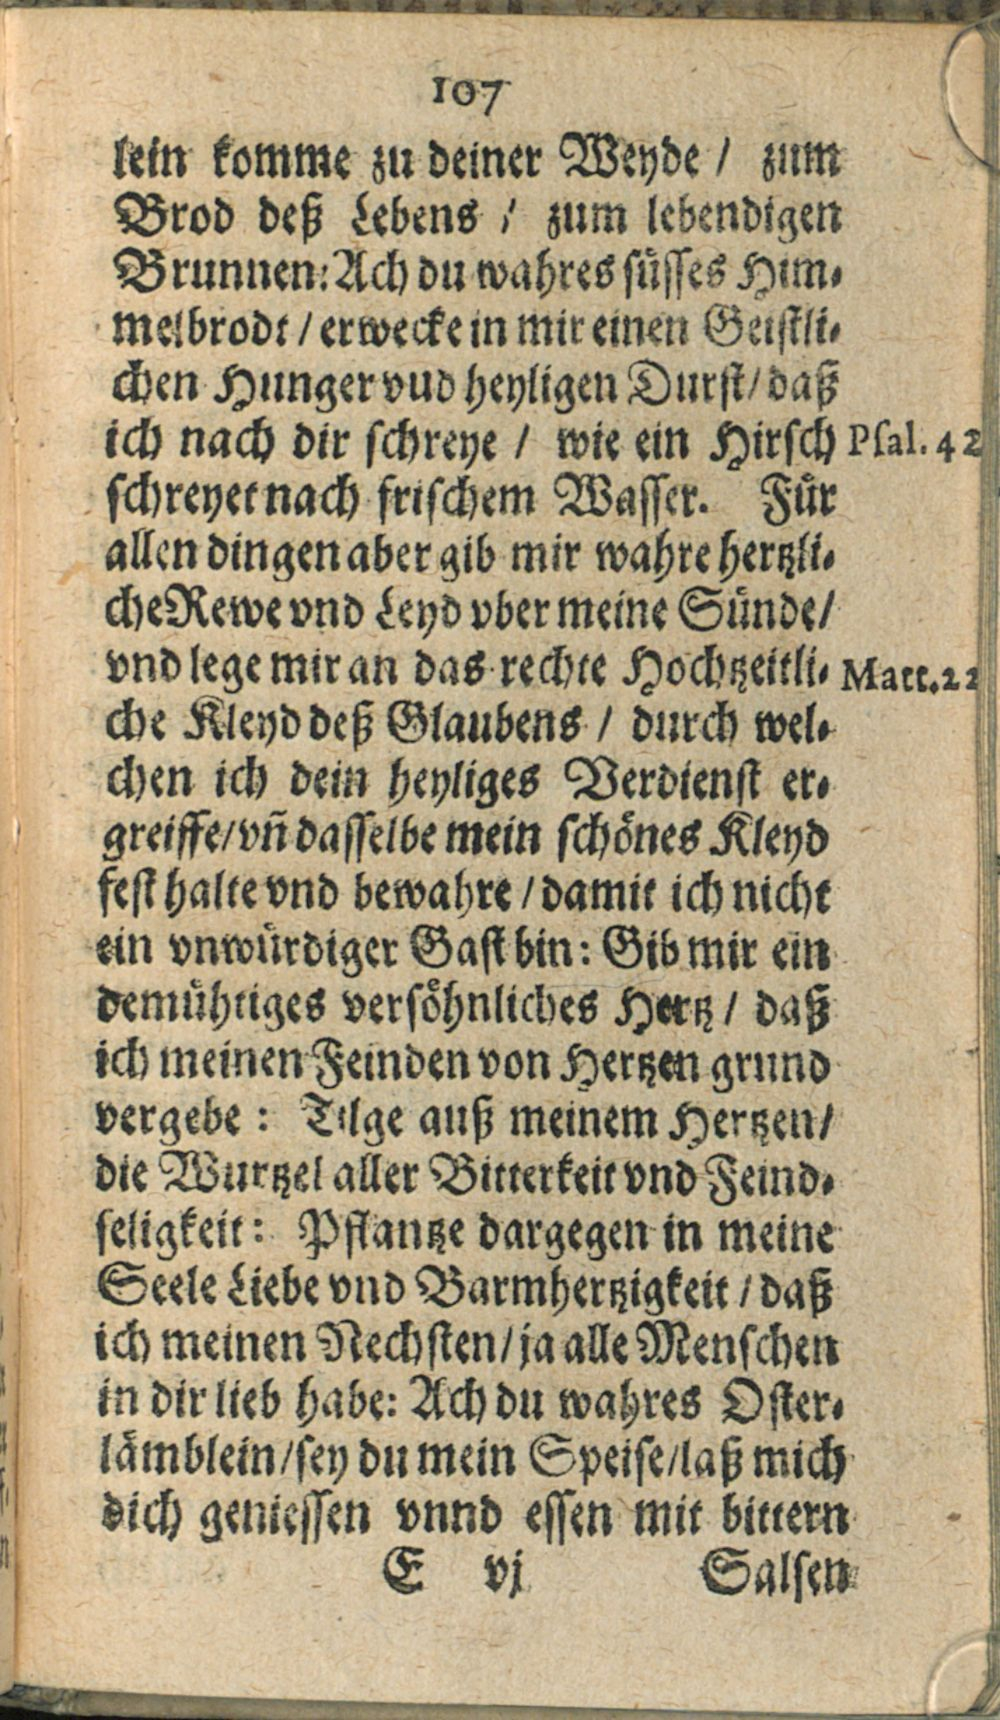 107
lein komme zu deiner Weyde / zum
Brod deß Lebens / zum lebendigen
Brunnen: Ach du wahres süsses Him-
melbrodt / erwecke in mir einen Geistli-
chen Hunger vud heyligen Durst / daß
ich nach dir schreye / wie ein Hirsch Psal. 42
schreyet nach frischem Wasser. Für
allen dingen aber gib mir wahre hertzli-
che Rewe vnd Leyd vber meine Sünde /
vnd lege mir an das rechte Hochtzeitli- Matt. 22
che Kleyd deß Glaubens / durch wel-
chen ich dein heyliges Verdienst er-
greiffe / vñ dasselbe mein schönes Kleyd
fest halte vnd bewahre / damit ich nicht
ein vnwürdiger Gast bin: Gib mir ein
demühtiges versöhnliches Hertz / daß
ich meinen Feinden von Hertzen grund
vergebe: Tilge auß meinem Hertzen /
die Wurtzel aller Bitterkeit vnd Feind-
seligkeit: Pflantze dargegen in meine
Seele Liebe vnd Barmhertzigkeit / daß
ich meinen Nechsten / ja alle Menschen
in dir lieb habe: Ach du wahres Oster-
lämblein / sey du mein Speise / laß mich
dich geniessen vnnd essen mit bittern
E vj Salsen